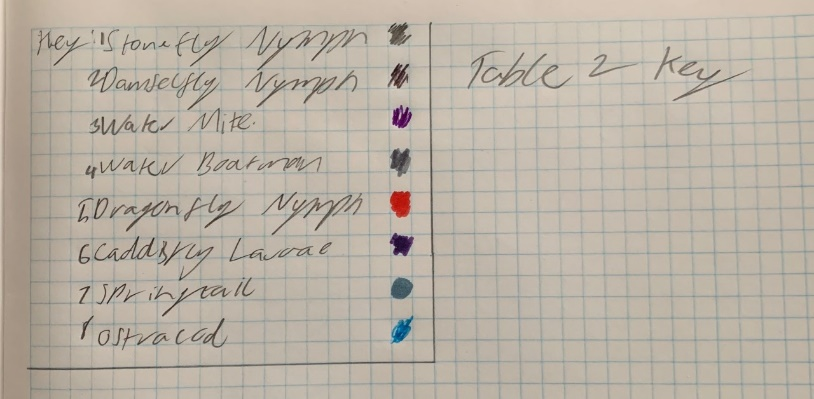 Key: 1 Stonefly Nymph
Table 2 Key
2 Damselfly Nymph
3 Water Mite.
4 Water Boatman
5 Dragonfly Nymph
6 Caddisfly Lavae
7 Springtail
8 Ostracod